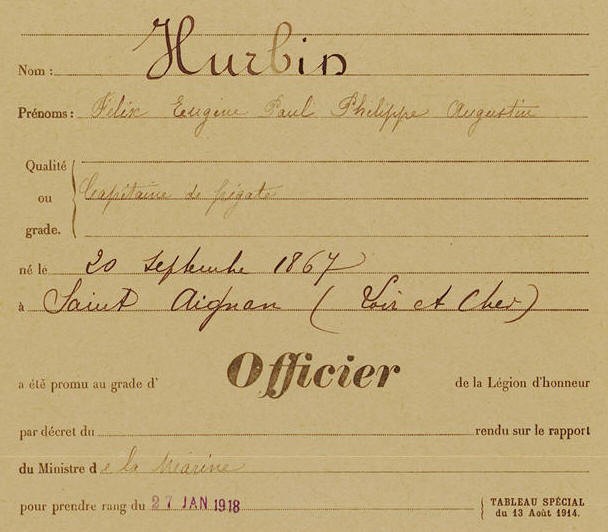 Nom : Hurbin
Prénoms : Félix Eugène Paul Philippe Augustin
Qualité
ou Capitaine de frégate
grade.
né le 20 Septembre 1867
à Saint Aignan (Loir et Cher)
a été promu au grade d' Officier de la Légion d'honneur
par décret du rendu sur le rapport
du Ministre de la Marine
pour prendre rang du 27 JAN 1918
TABLEAU SPÉCIAL
du 13 Août 1914.